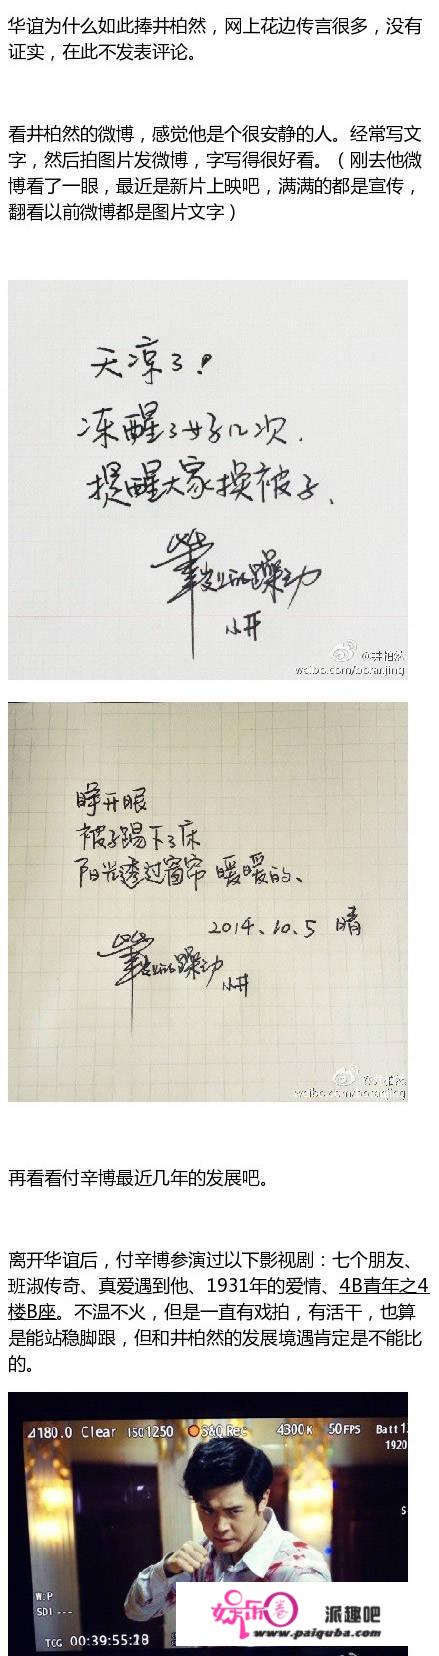 华谊为什么如此捧井柏然，网上花边传言很多，没有
证实，在此不发表评论。
看井柏然的微博，感觉他是个很安静的人。经常写文
字，然后拍图片发微博，字写得很好看。（刚去他微
博看了一眼，最近是新片上映吧，满满的都是宣传，
翻看以前微博都是图片文字）
天凉了！
冻醒了好几次.
提醒大家换被子.
小井
@井柏然
weibo.com/boranjing
睁开眼
被子踢下了床
阳光透过窗帘 暖暖的、
2014.10.5 晴
小井
weibo.com/boranjing
再看看付辛博最近几年的发展吧。
离开华谊后，付辛博参演过以下影视剧：七个朋友、
班淑传奇、真爱遇到他、1931年的爱情、4B青年之4
楼B座。不温不火，但是一直有戏拍，有活干，也算
是能站稳脚跟，但和井柏然的发展境遇肯定是不能比
的。
⊿180.0 Clear ISO1250 S&Q Rec 4300K 50FPS Batt 1
1920
S
W:P
SDI ---
TCG 00:39:55:18
娱乐圈 派趣吧
www.paiquba.com